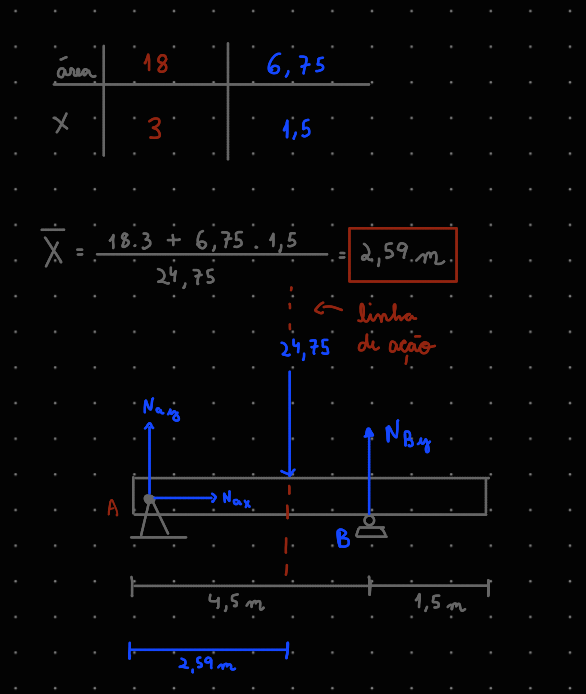 área 18 6,75
X 3 1,5
X̄ = 18.3 + 6,75 . 1,5 / 24,75 = 2,59 m
← linha
de ação
24,75
Nay
NBy
Nax
A
B
4,5 m 1,5 m
2,59 m